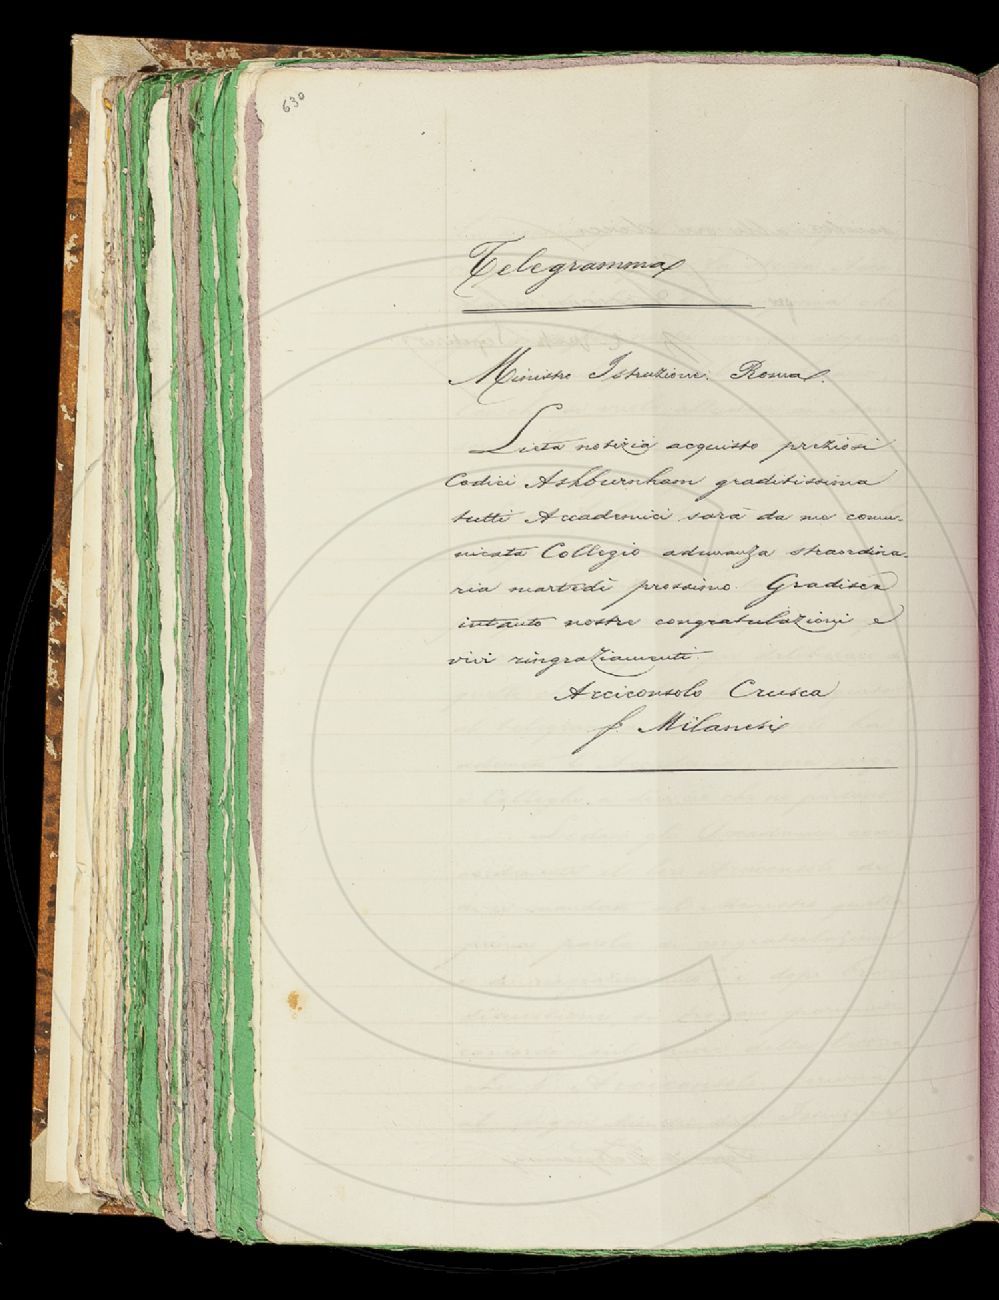 630
Telegramma
Ministro Istruzione. Roma.
Lieta notizia acquisto preziosi
Codici Ashburnham graditissima
tutti Accademici sarà da me comu-
nicata Collegio adunanza straordina-
ria martedì prossimo. Gradisca
intanto nostre congratulazioni e
vivi ringraziamenti.
Arciconsolo Crusca
f. Milanesi